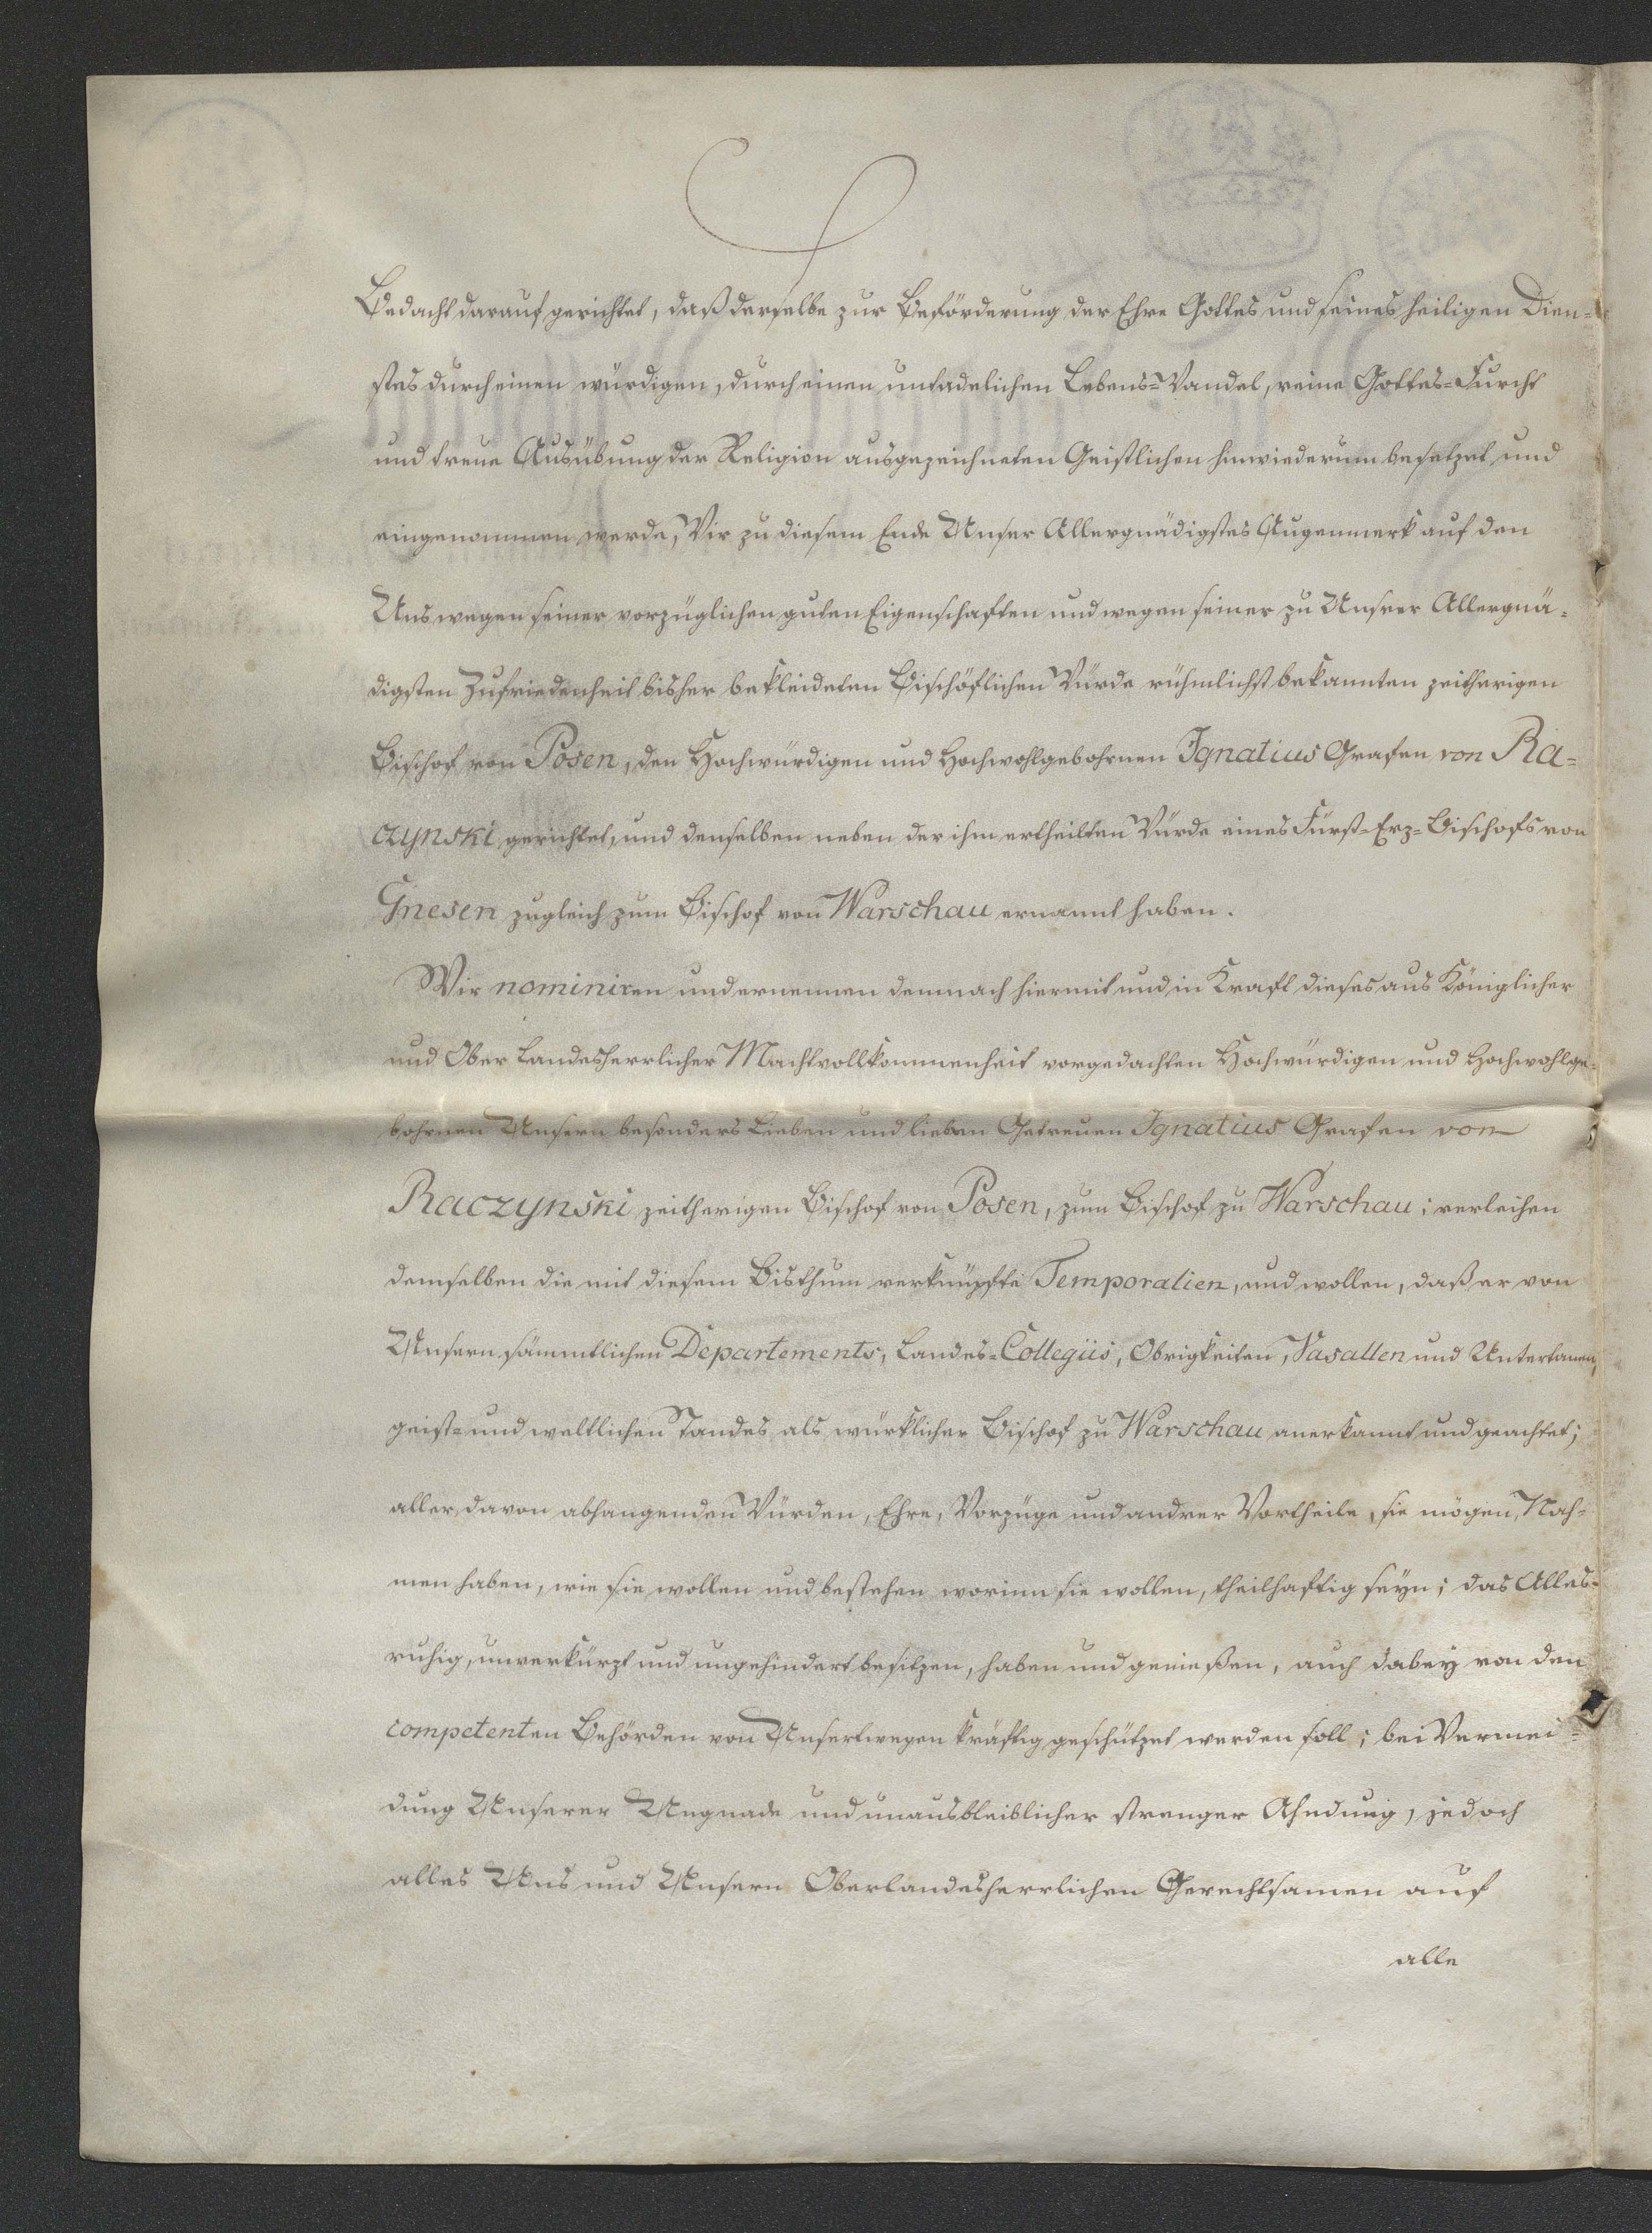 Bedacht darauf gerichtet, daß derselbe zur Beförderung der Ehre Gottes und seines heiligen Dien=
stes durch einen würdigen, durch einen untadelichen Lebens=Wandel, reine Gottes=Furcht
und treue Ausübung der Religion ausgezeichneten Geistlichen hinwiederum besetzet und
eingenommen werde, Wir zu diesem Ende Unser Allergnädigstes Augenmerk auf den
Uns wegen seiner vorzüglichen guten Eigenschaften und wegen seiner zu Unsrer Allergnä=
digsten Zufriedenheit bisher bekleideten Bischöflichen Würde rühmlichst bekannten zeitherigen
Bischof von Posen, den Hochwürdigen und Hochwohlgebohrnen Ignatius Grafen von Ra=
czynski gerichtet, und denselben neben der ihm ertheilten Würde eines Fürst=Erz=Bischofs von
Gnesen zugleich zum Bischof von Warschau ernannt haben.
Wir nominiren und ernennen demnach hiermit und in Kraft dieses aus Königlicher
und Ober Landesherrlicher Machtvollkommenheit vorgedachten Hochwürdigen und Hochwohlge=
bohrnen Unsern besonders Lieben und lieben Getreuen Ignatius Grafen von
Raczynski zeitherigen Bischof von Posen, zum Bischof zu Warschau; verleihen
demselben die mit diesem Bisthum verknüpfte Temporalien, und wollen, daß er von
Unsern sämmtlichen Departements, Landes=Collegiis, Obrigkeiten, Vasallen und Untertanen,
geist= und weltlichen Standes als würklicher Bischof zu Warschau anerkannt und geachtet;
aller davon abhangenden Würden, Ehre, Vorzüge und andrer Vortheile, sie mögen Nah=
men haben, wie sie wollen und bestehen worinn sie wollen, theilhaftig seyn; das Alles
ruhig, unverkürzt und ungehindert besitzen, haben und genießen, auch dabey von den
competenten Behörden von Unsertwegen kräftig geschützet werden soll; bei Vermei=
dung Unserer Ungnade und unausbleiblicher strenger Ahndung, jedoch
alles Uns und Unsern Oberlandesherrlichen Gerechtsamen auf
alle